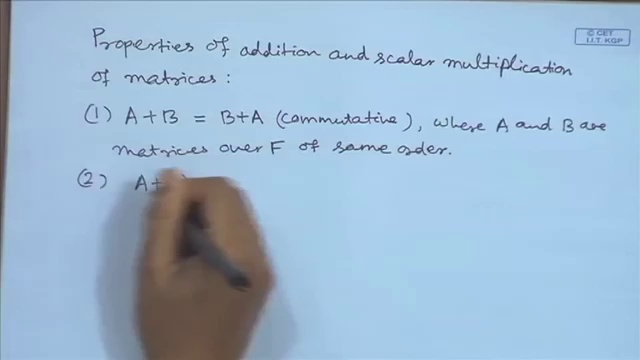 © CET
I.I.T. KGP
Properties of addition and scalar multiplication
of matrices :
(1) A + B = B + A (commutative), where A and B are
matrices over F of same order.
(2) A +